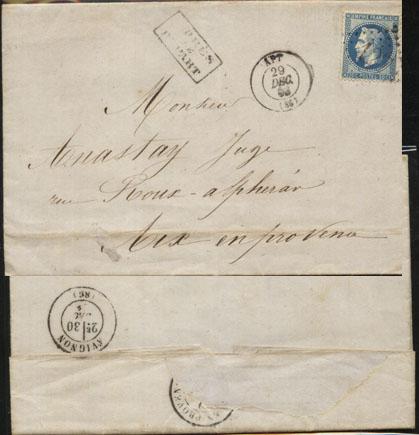 APRÈS
LE
DÉPART
APT
29
DEC.
68
(86)
EMPIRE FRANÇAIS
20 C. POSTES 20 C.
Monsieur
Anastay Juge
rue Roux-alphéran
Aix en provence
AVIGNON
2E 30
DEC.
(86)
EN-PROVEN